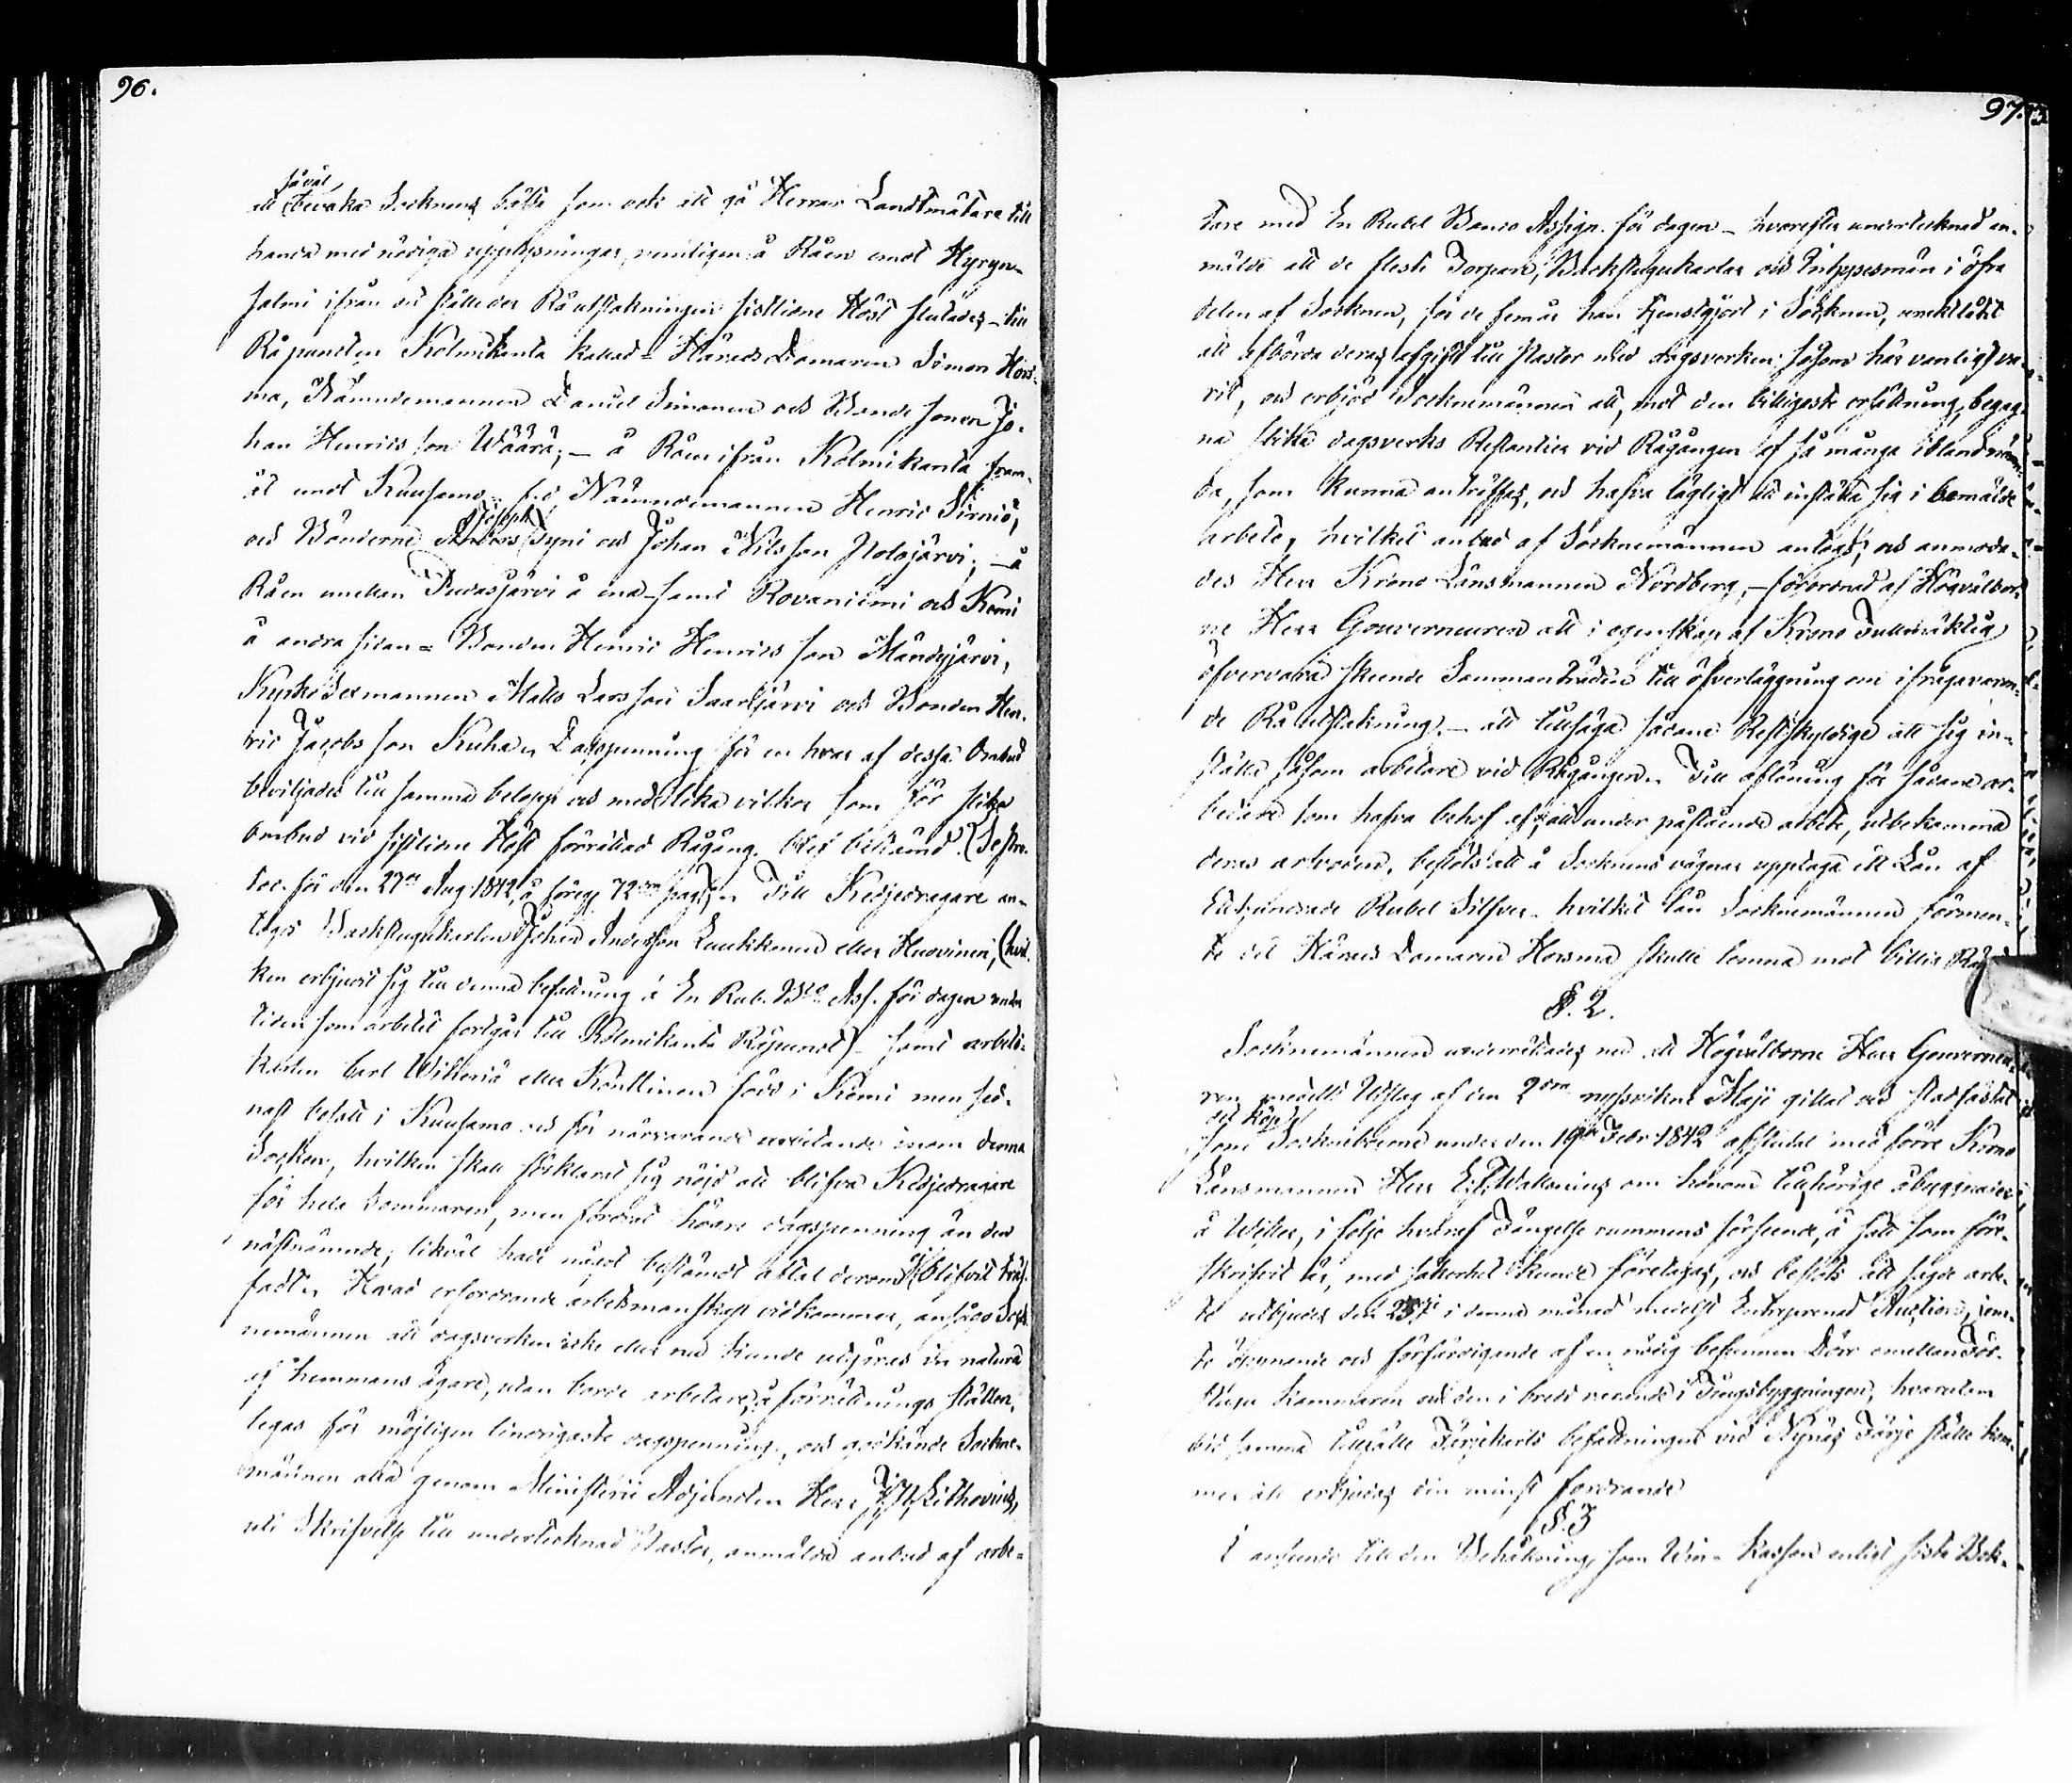 96.
såväl
att bevaka Socknens bästa som ock att gå Herrar Landtmätare till
handa med nödiga upplysningar, nemligen å Råen emot Hyryn-
salmi ifrån det ställe der Råutstakningen sistlidne Höst slutades – till
Råpuncten Kolmikanta kallad = Härads Domaren Simon Hors-
ma, Nämndemannen Daniel Simonen och Bonde sonen Jo-
han Henrics son Wäärä; – å Råen ifrån Kolmikanta fram-
åt emot Kuusamo, Nämndemannen Henric Sirniö,
Joseph
och Bönderne Anders Tyni och Johan Nilsson Nolojärvi; – å
Råen emellan Pudasjärvi å ena – samt Rovaniemi och Kemi
å andra sidan = Bonden Henric Henrics son Mändyjärvi,
Kyrko Sexmannen Matts Larsson Saarijärvi och Bonden Hen-
ric Jacobs son Kuha. Dagspenning för en hvar af dessa Ombud
beviljades till samma belopp och med lika vilkor som för slika
Ombud vid sistlidne Höst förrättad Rågång blef bestämd. (Se Pro-
toc. för den 27de Aug. 1842, å föreg. 72dra pag.). Till Kedjedragare an-
togs Backstugukarlen Johan Andersson Luukkonen eller Huovinen, (hvil-
ken erbjudit sig till denna befattning á En Rub. Bco Ass. för dagen under
tiden som arbetet fortgår till Kolmikanta Råpunct) – samt arbets-
karlen Carl Wikteriä eller Könttinen född i Kemi men sed-
nast bosatt i Kuusamo och för närvarande arbetande inom denna
Socken, hvilken skall förklarat sig nöjd att blifva Kedjedragare
för hela Sommaren, men fordrat högre dagspenning än den
nästnämnde, likväl hade något bestämdt aftal derom ej blifvit träf-
fadt. Hvad erfordrande arbetsmanskap vidkommer, ansågo Sock-
nemännen att dagsverken icke eller nu kunde utgöras in natura
af hemmans ägare, utan borde arbetare, å förrättnings stället,
legas för möjligen lindrigaste dagspenning, och godkände Sockne-
männen altså genom Ministerii Adjuncten Herr J. H. Lithovius,
uti Skrifvelse till undertecknad Pastor, anmäldt anbud af arbe-
97.
tare med En Rubel Banco Assign. för dagen – hvarefter undertecknad an-
mälde att de fleste Torpare, Backstugukarlar och Inhyssesmän i öfra
delen af Socknen, för de fem år han tjenstgjort i Socknen, underlåtit
att afbörda deras afgift till Pastor med dagsverken såsom här vanligt va-
rit, och erbjöd Socknemännen att, mot den billigaste ersättning, begag-
na slika dagsverks Restantier vid Rågången af så många ibland näm-
da, som kunna anträffas, och hafva lägligt att inställa sig i bemälde
arbete, hvilket anbud af Socknemännen antogs; och anmoda-
des Herr Krono Länsmannen Nordberg, – förordnad af Högvälbor-
ne Herr Gouverneuren att i egenskap af Krono Fullmäktig
öfvervara skeende Sammanträden till öfverläggning om ifrågavaran-
de Råutstakning – att tillsäga sådane Restskyldige att sig in-
ställa såsom arbetare vid Rågången. Till aflöning för sådane ar-
betare som hafva behof af, att under påstående arbete, utbekomma
deras arfvoden, beslöts att å Socknens vägnar upptaga ett Lån af
Etthundrade Rubel Silfver – hvilket lån Socknemännen förmen-
te det Härads Domaren Horsma skulle lemna mot billig
§. 2.
Socknemännen underrättades nu att Högvälborne Herr Gouverneu-
ren medelst Utslag af den 2dra nyssvikne Maji gillat och stadfästat
det köp
som Sockneboerne under den 19de Febr. 1842 afslutat med förre Krono
Länsmannen Herr E. F. Wallenius om honom tillhörige åbyggnader
å Wester, i följe hvaraf Fängelse rummens förseende, å sätt som före-
skrifvit är, med säkerhet kunde företagas, och beslöts att sagde arbe-
te utbjudes den 23je i denna månad medelst Entreprenad Auction, jem-
te öppnande och förfärdigande af en nödig befunnen Dörr emellan För-
stugu kammaren och den i bredd varande i Tingsbyggningen, hvarutom
vid samma tillfälle Färjekarls befattningen vid Kynäs Färje ställe kom-
mer att erbjudas den minst fordrande
§. 3
I anseende till den Behållning, som Win-Kassan enligt sista Bok-